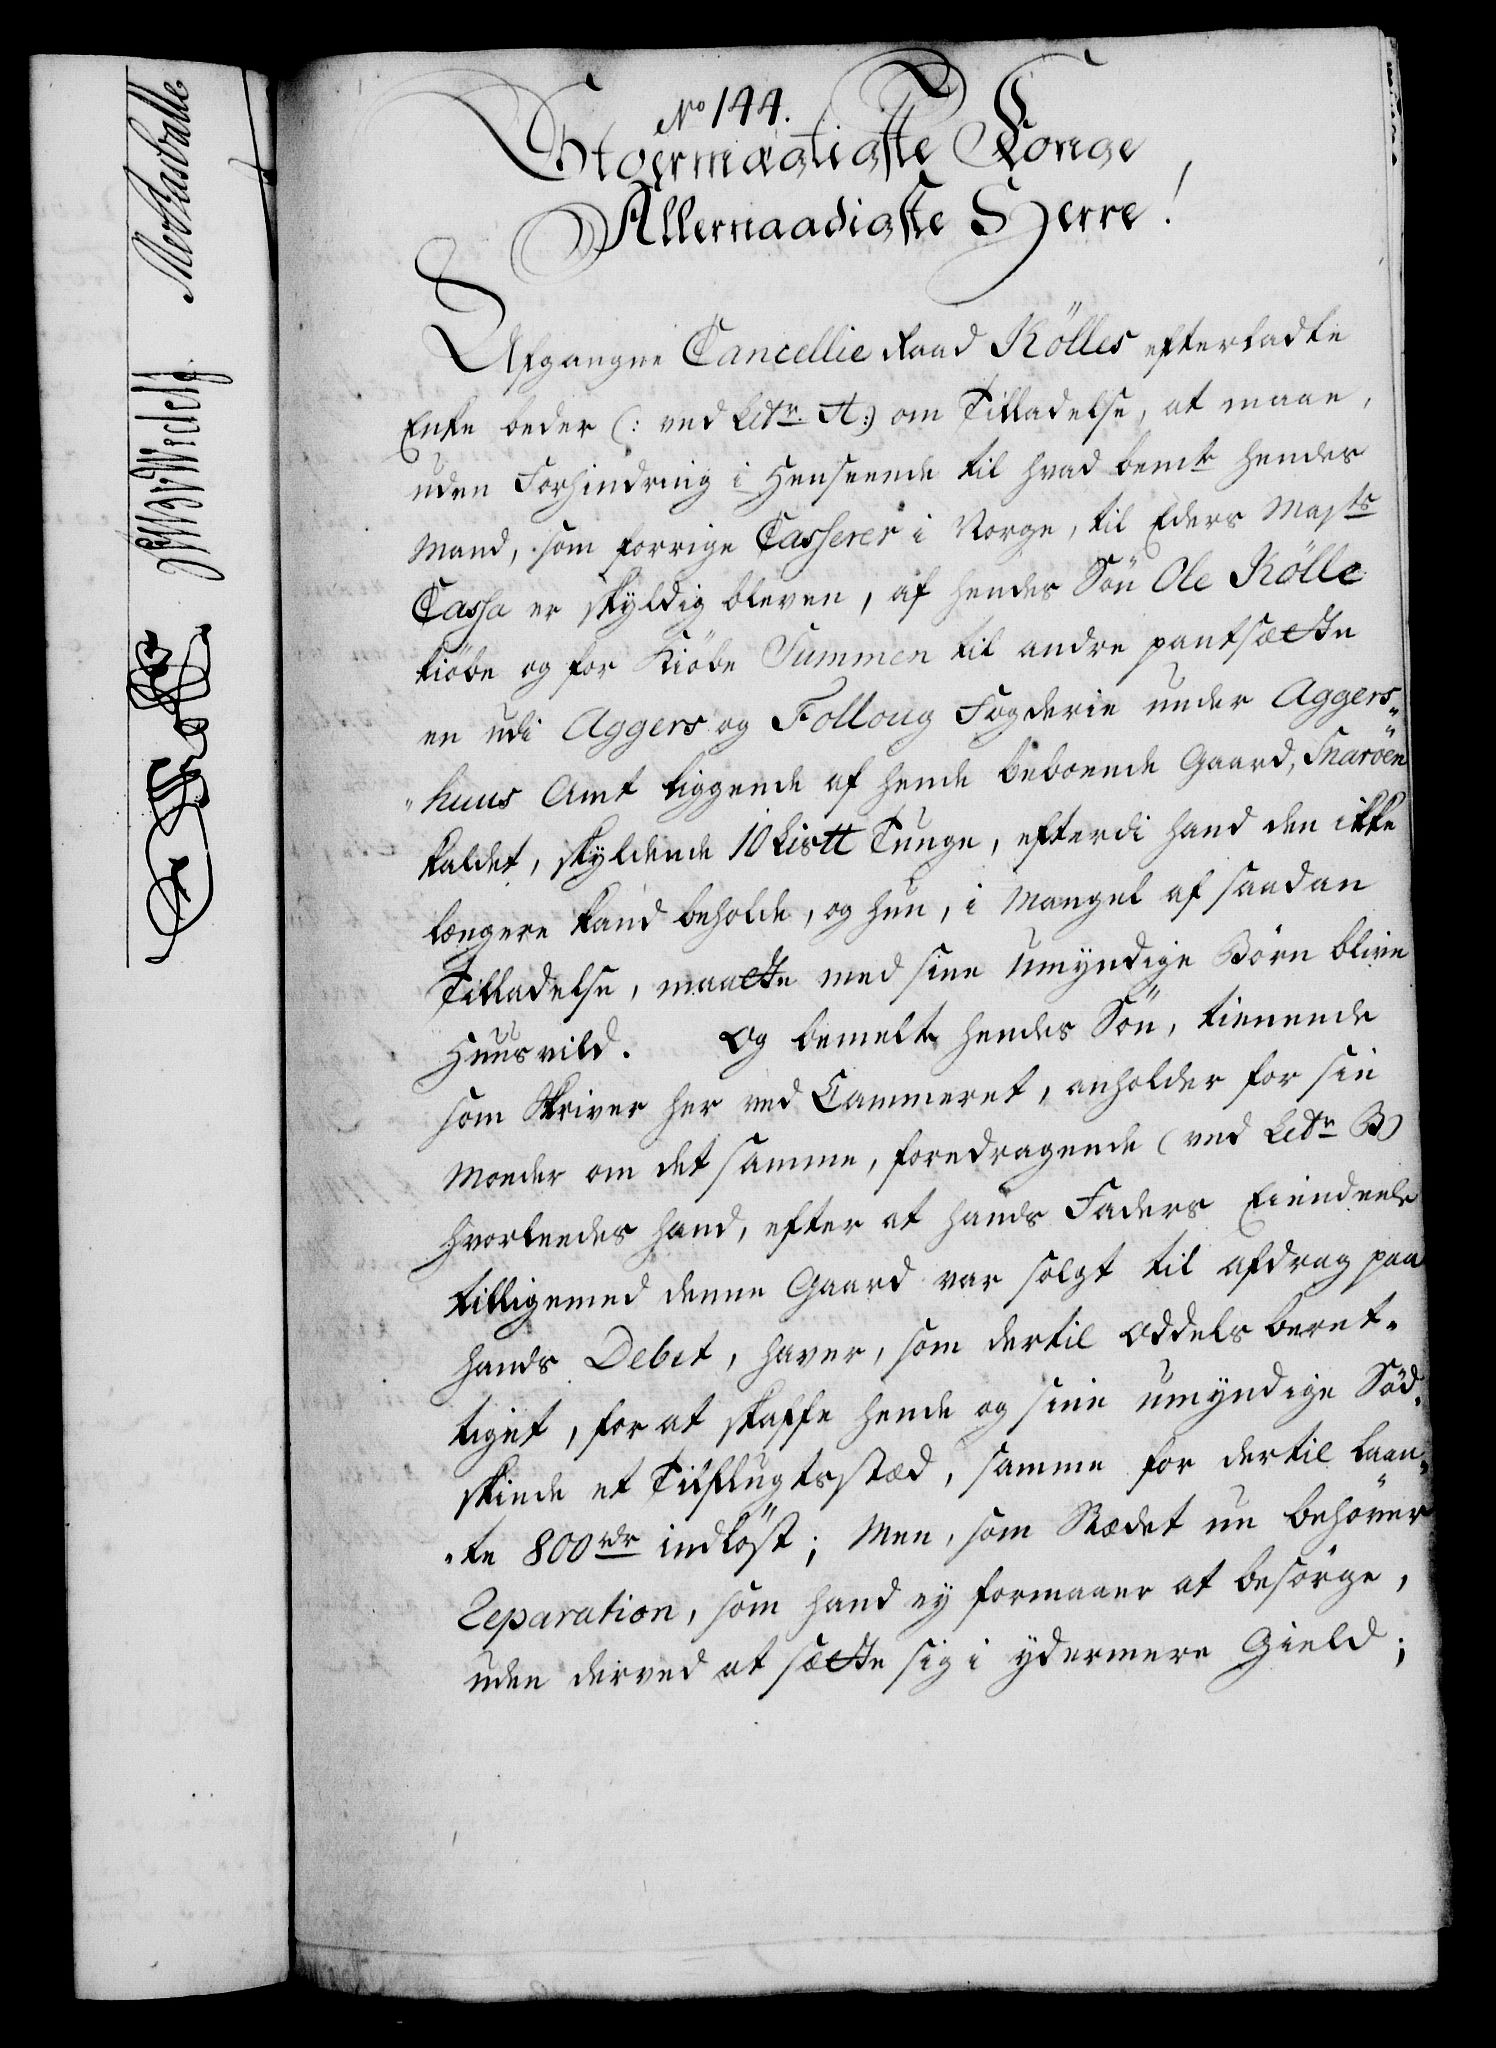 No 144.
Stoermægtigste Konge
Allernaadigste Herre!
Afgangne Cancellie Raad Kölles efterladte
Enke beder (: ved Littr. A:) om Tilladelse, at maae,
uden Forhindring i Henseende til hvad bemte hendes
Mand, som forrige Casserer i Norge, til Eders Mayts
Cassa er skyldig bleven, af hendes Sön Ole Kölle
kiöbe og for Kiöbe Summen til andre pantsætte
en udi Aggers og Folloug Fogderie under Aggers-
huus Amt liggende af hende beboende Gaard, Snaröen
kaldet, skyldende 10 Lis℔ Tunge, efterdi hand den ikke
længere kand beholde, og hun, i Mangel af saadan
Tilladelse, maatte med sine Umyndige Börn blive
Huusvild. Og bemelte hendes Sön, tienende
som Skriver her ved Cammeret, anholder for sin
Moeder om det samme, foredragende (ved Littr B)
hvorleedes hand, efter at hands Faders Eiendeele
tilligemed denne Gaard var solgt til afdrag paa
hands Debet, haver, som dertil Oddels beret-
tiget, for at skaffe hende og sine umyndige Söd-
skiende et Tilflugtsstæd, samme for dertil laan-
te 800 rdr indlöst; Men, som Stædet nu behöver
Reparation, som hand ey formaaer at besörge,
uden derved at sætte sig i ydermere Gield;